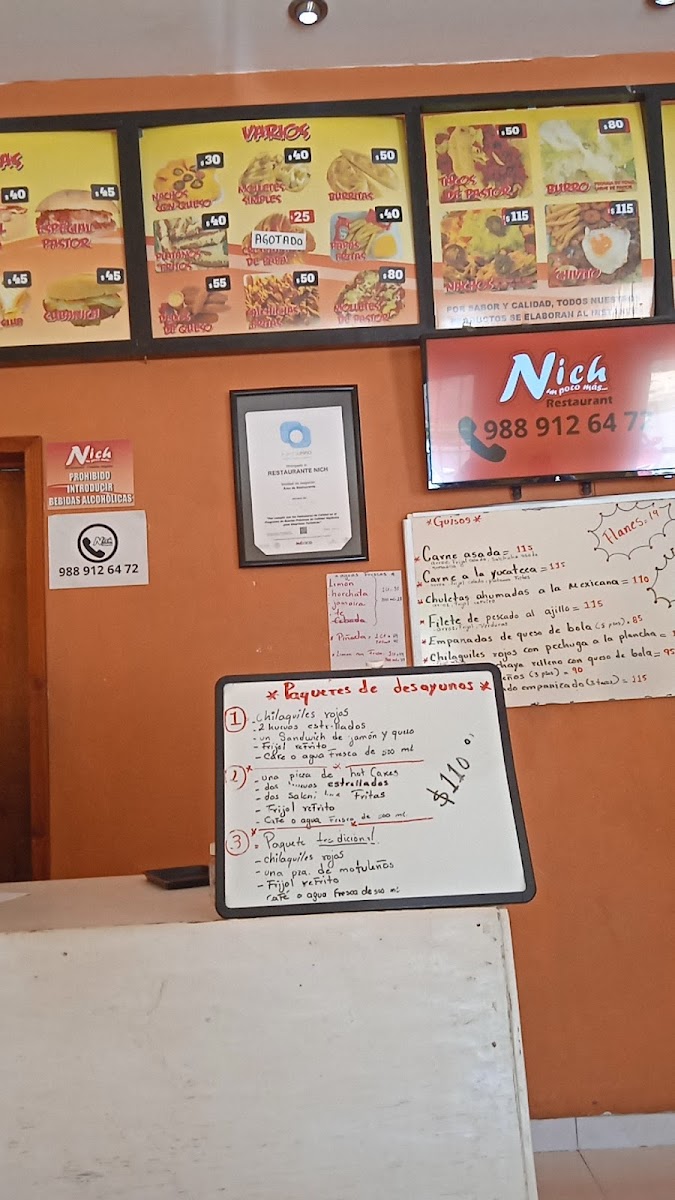 AS
$40
$45
ESPECIAL
PASTOR
$45
$45
CLUB
CUBANA
VARIOS
$30
$40
$50
NACHOS
CON QUESO
MOLLETES
SIMPLES
BURRITAS
$40
$25
$40
AGOTADO
PLATANOS
FRITOS
PAPAS
FRITAS
$55
$50
$80
DEDOS
DE QUESO
SALCHICHAS
FRITAS
MOLLETES
DE PASTOR
$50
$80
TACOS
DE PASTOR
BURRO
$115
$115
NACHOS
CHIVITO
POR SABOR Y CALIDAD, TODOS NUESTRO
SE ELABORAN AL INSTAN
Nich
un poco más...
Restaurant
988 912 64 72
Nich
PROHIBIDO
INTRODUCIR
BEBIDAS ALCOHÓLICAS
Nich
988 912 64 72
RESTAURANTE NICH
Limón
horchata
jamaica
Cebada
Piñada
*Guisos*
Flanes=19
*Carne asada= 115
*Carne a la yucateca = 115
*Chuletas ahumadas a la Mexicana = 110
*Filete de pescado al ajillo = 115
*Empanadas de queso de bola (3 pzas). 85
*Chilaquiles rojos con pechuga a la plancha =
chaya relleno con queso de bola= 95
eños (3 pzas) = 90
do empanizado (3 tacos) = 115
*Paquetes de desayunos*
1 - Chilaquiles rojos
- 2 huevos estrellados
- un sandwich de jamón y queso
- Frijol refrito
- Café o agua fresca de 500 ml
2 - una pieza de hot Cakes
- dos huevos estrellados
- dos Salchichas Fritas
- Frijol refrito
- Café o agua fresca de 500 ml
$110.00
3 = Paquete tradicional.
- chilaquiles rojos
- una pza. de motuleños
- Frijol refrito
café o agua fresca de 500 ml